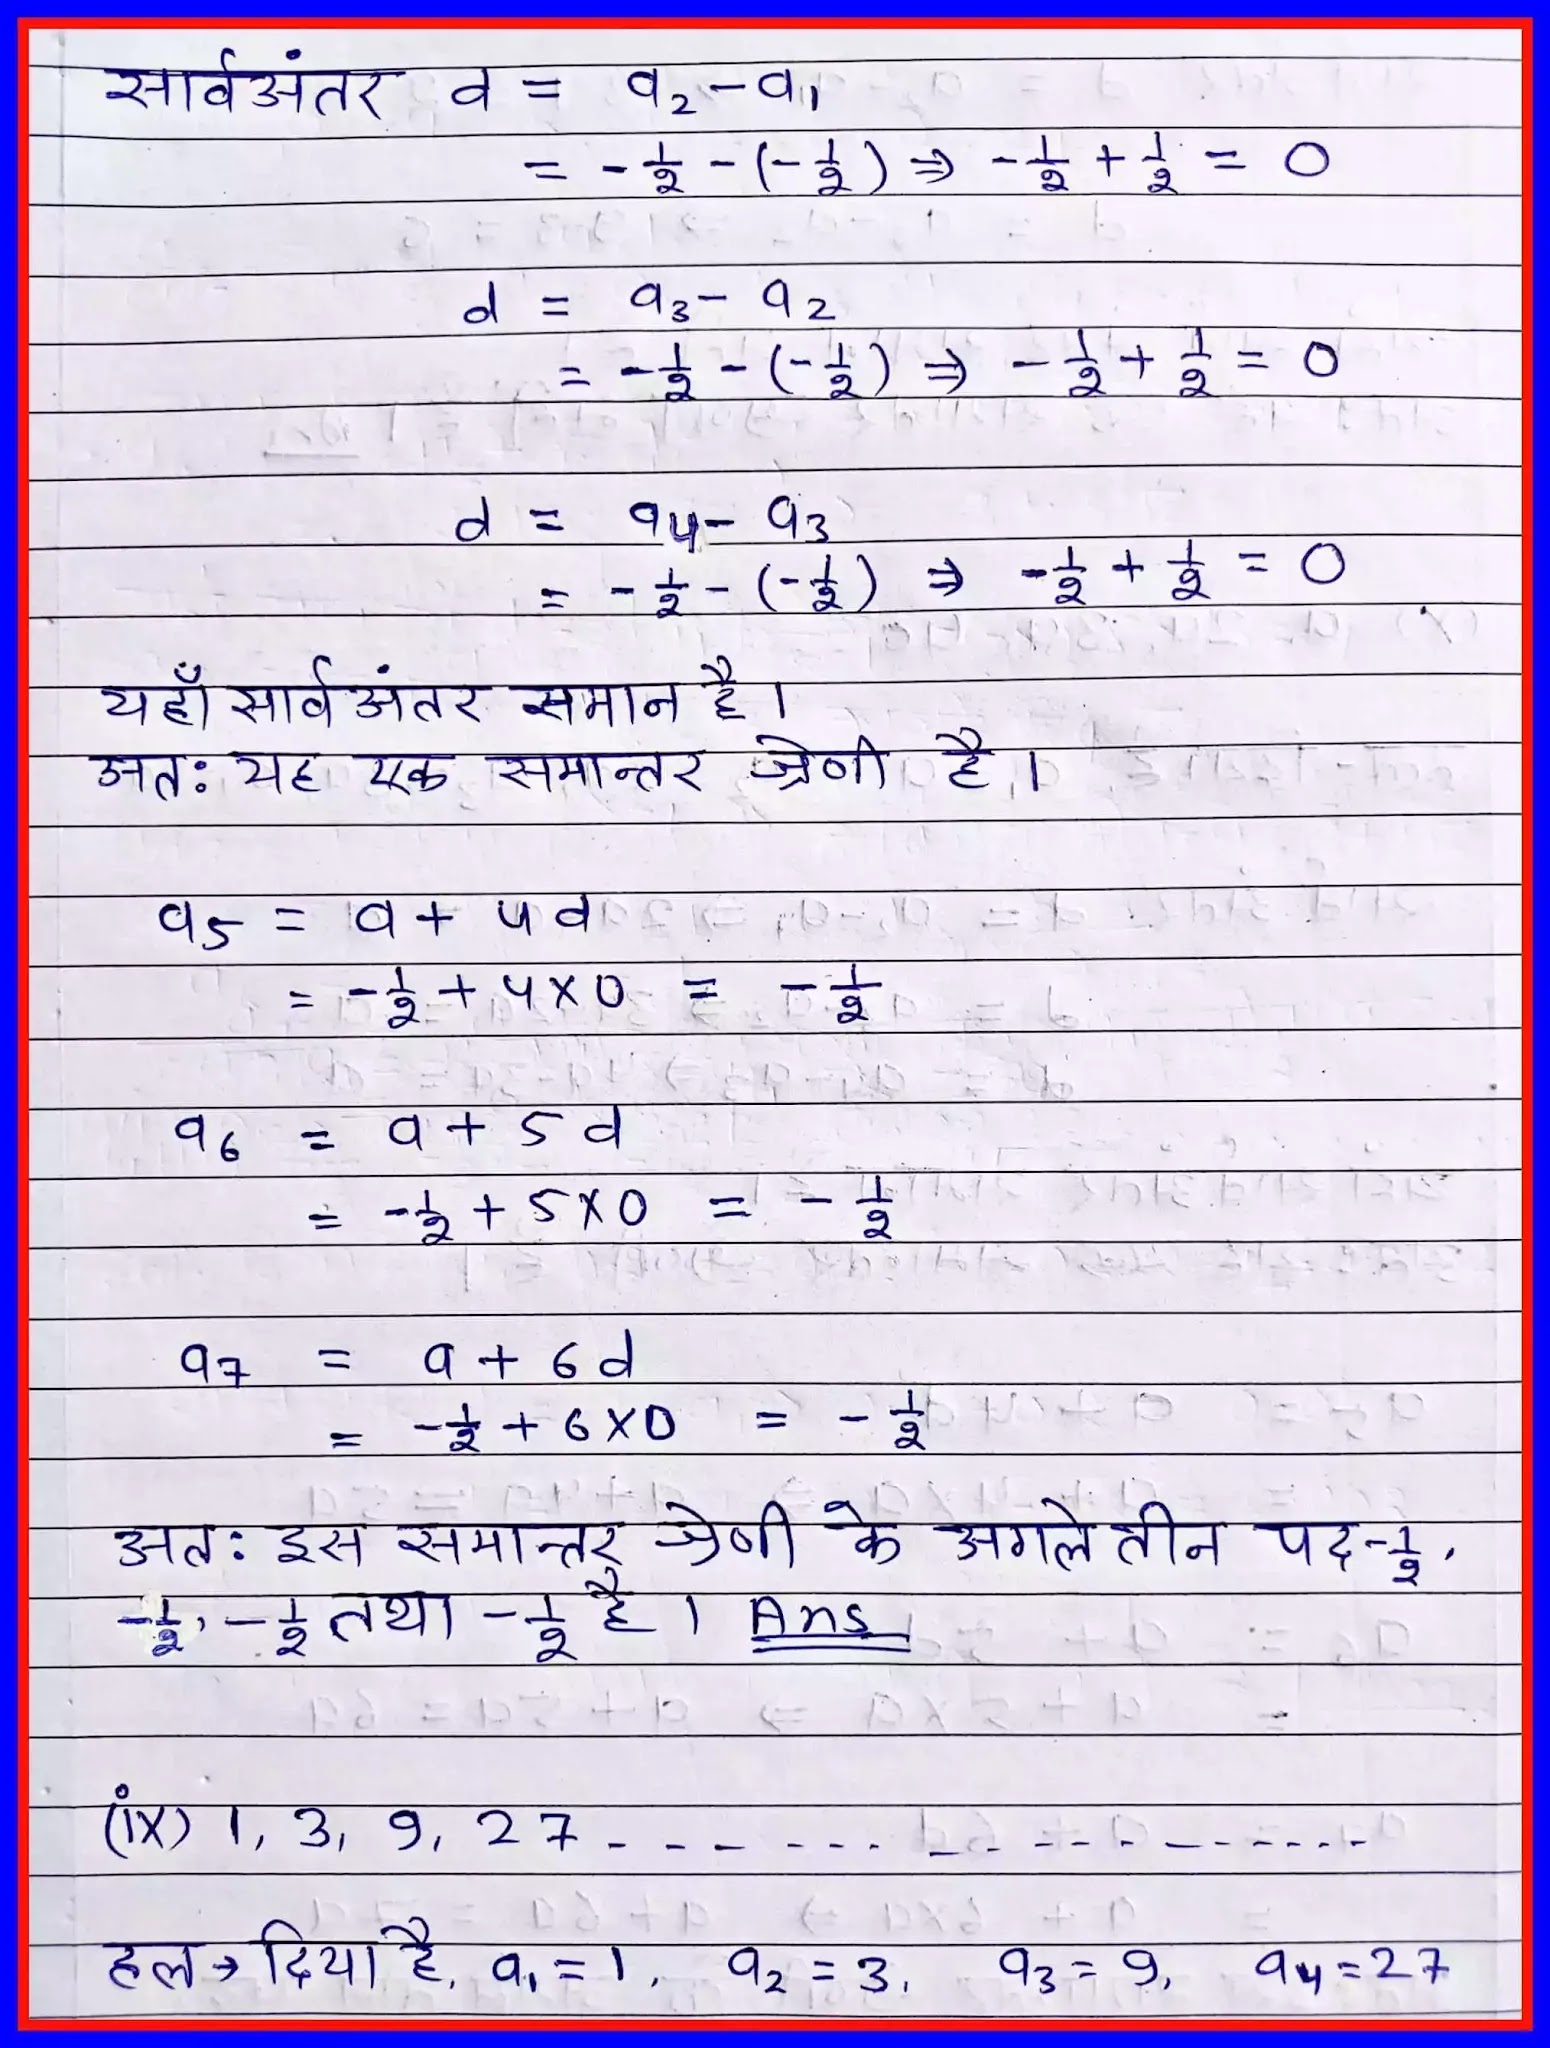 सार्वअंतर d = a₂ - a₁
= -1/2 - (-1/2) ⇒ -1/2 + 1/2 = 0
d = a₃ - a₂
= -1/2 - (-1/2) ⇒ -1/2 + 1/2 = 0
d = a₄ - a₃
= -1/2 - (-1/2) ⇒ -1/2 + 1/2 = 0
यहाँ सार्वअंतर समान है।
अतः यह एक समान्तर श्रेणी है।
a₅ = a + 4d
= -1/2 + 4×0 = -1/2
a₆ = a + 5d
= -1/2 + 5×0 = -1/2
a₇ = a + 6d
= -1/2 + 6×0 = -1/2
अतः इस समान्तर श्रेणी के अगले तीन पद -1/2,
-1/2, -1/2 तथा -1/2 है। Ans
(ix) 1, 3, 9, 27 - - - - - - - - - - - - - - -
हल → दिया है, a₁ = 1, a₂ = 3, a₃ = 9, a₄ = 27